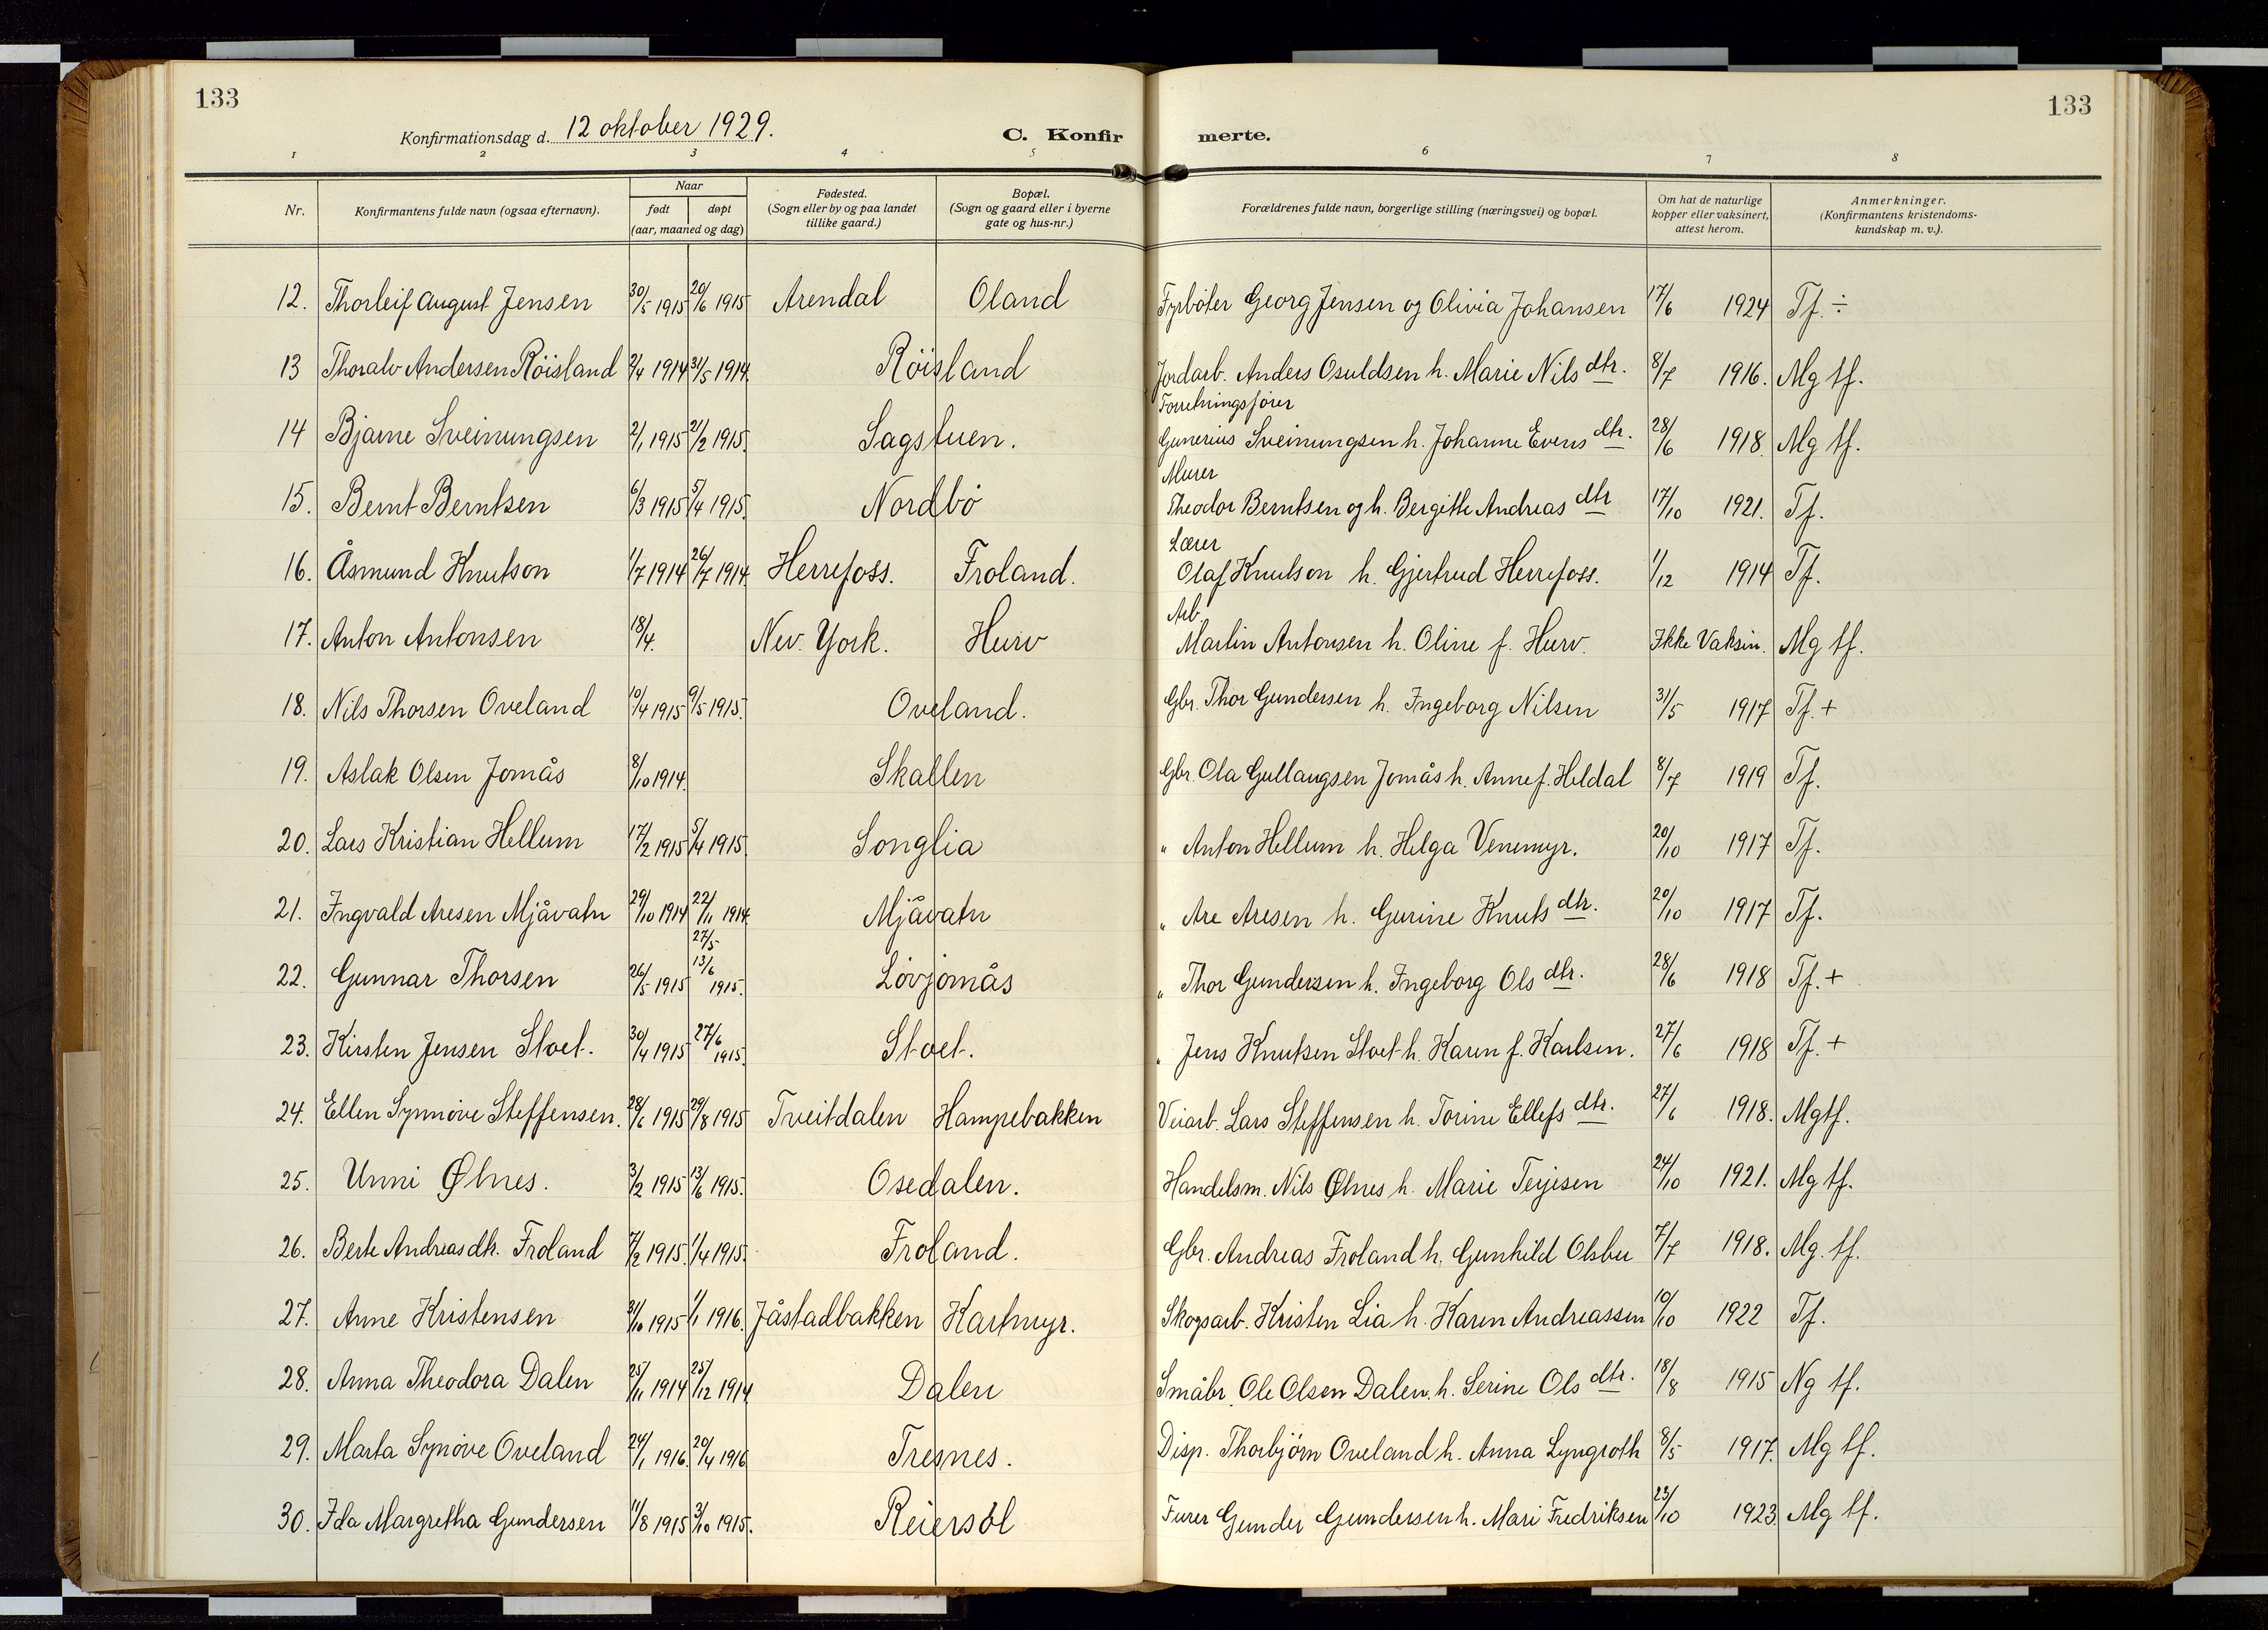 133
133
Konfirmationsdag d. 12 oktober 1929.
C. Konfir merte.
1 2 3 4 5 6 7 8
Nr.
Konfirmantens fulde navn (ogsaa efternavn).
Naar
født døpt
(aar, maaned og dag)
Fødested.
(Sogn eller by og paa landet
tillike gaard.)
Bopæl.
(Sogn og gaard eller i byerne
gate og hus-nr.)
Forældrenes fulde navn, borgerlige stilling (næringsvei) og bopæl.
Om hat de naturlige
kopper eller vaksinert,
attest herom.
Anmerkninger.
(Konfirmantens kristendoms-
kundskap m. v.).
12. Thorleif August Jensen 30/5 1915 20/6 1915 Arendal Oland Fyrbøter Georg Jensen og Olivia Johansen 17/6 1924 Tf. ÷
13 Thoralv Andersen Röisland 2/4 1914 31/5 1914. Röisland Jordarb. Anders Osuldsen h. Marie Nils dtr. 8/7 1916. Mg tf.
Forretningsfører
14 Bjarne Sveinungsen 2/1 1915 21/2 1915. Sagstuen. Gunerius Sveinungsen h. Johanne Evens dtr. 28/6 1918. Mg tf.
Murer
15. Bernt Berntsen 6/3 1915 5/4 1915. Nordbö Theodor Berntsen og h. Bergitte Andreas dtr 17/10 1921. Tf.
Lærer
16. Åsmund Knutson 1/7 1914 26/7 1914. Herrefoss. Froland. Olaf Knutson h. Gjertrud Herrefoss. 1/12 1914 Tf.
Arb.
17. Anton Antonsen 18/4. Nev. York. Hurv Martin Antonsen h. Oline f. Hurv. Ikke Vaksin. Mg tf.
18. Nils Thorsen Oveland 10/4 1915 9/5 1915. Oveland. Gbr. Thor Gundersen h. Ingeborg Nilsen 31/5 1917 Tf. +
19. Aslak Olsen Jomås 8/10 1914. Skallen Gbr. Ola Gullaugsen Jomås h. Anne f. Heldal 8/7 1919 Tf.
20. Lars Kristian Hellum 17/2 1915 5/4 1915. Songlia " Anton Hellum h. Helga Venemyr. 20/10 1917 Tf.
21. Ingvald Aresen Mjåvatn 29/10 1914 22/11 1914. Mjåvatn " Are Aresen h. Gurine Knuts dtr. 20/10 1917 Tf.
27/5
22. Gunnar Thorsen 26/5 1915 13/6 1915. Lövjomås " Thor Gundersen h. Ingeborg Ols dtr. 28/6 1918 Tf. +
23. Kirsten Jensen Stoet. 30/4 1915 27/6 1915. Stoet. " Jens Knutsen Stoet h. Karen f. Karlsen. 27/6 1918 Tf. +
24. Ellen Synnöve Steffensen. 28/6 1915 29/8 1915 Tveitdalen Hampebakken Veiarb. Lars Steffensen h. Torine Ellefs dtr. 27/6 1918. Mg tf.
25. Unni Ølnes. 3/2 1915 13/6 1915. Osedalen. Handelsm. Nils Ølnes h. Marie Terjesen 24/10 1921. Mg tf.
26. Berte Andreasdtr. Froland 7/2 1915. 1/4 1915. Froland. Gbr. Andreas Froland h. Gunhild Olsbu 7/7 1918. Mg. tf.
27. Anne Kristensen 31/10 1915 1/1 1916. Jåstadbakken Hartmyr. Skogsarb. Kristen Lia h. Karen Andreassen 10/10 1922 Tf.
28. Anna Theodora Dalen 25/11 1914 25/12 1914 Dalen Småbr. Ole Olsen Dalen. h. Serine Ols dtr. 18/8 1915 Ng tf.
29. Marta Synöve Oveland 24/1 1916. 20/4 1916 Tresnes. Disp. Thorbjörn Oveland h. Anna Lyngroth 8/5 1917. Mg tf.
30. Ida Margretha Gundersen 11/8 1915 3/10 1915. Reiersöl Furer Gunder Gundersen h. Mari Fredriksen 23/10 1923. Mg tf.